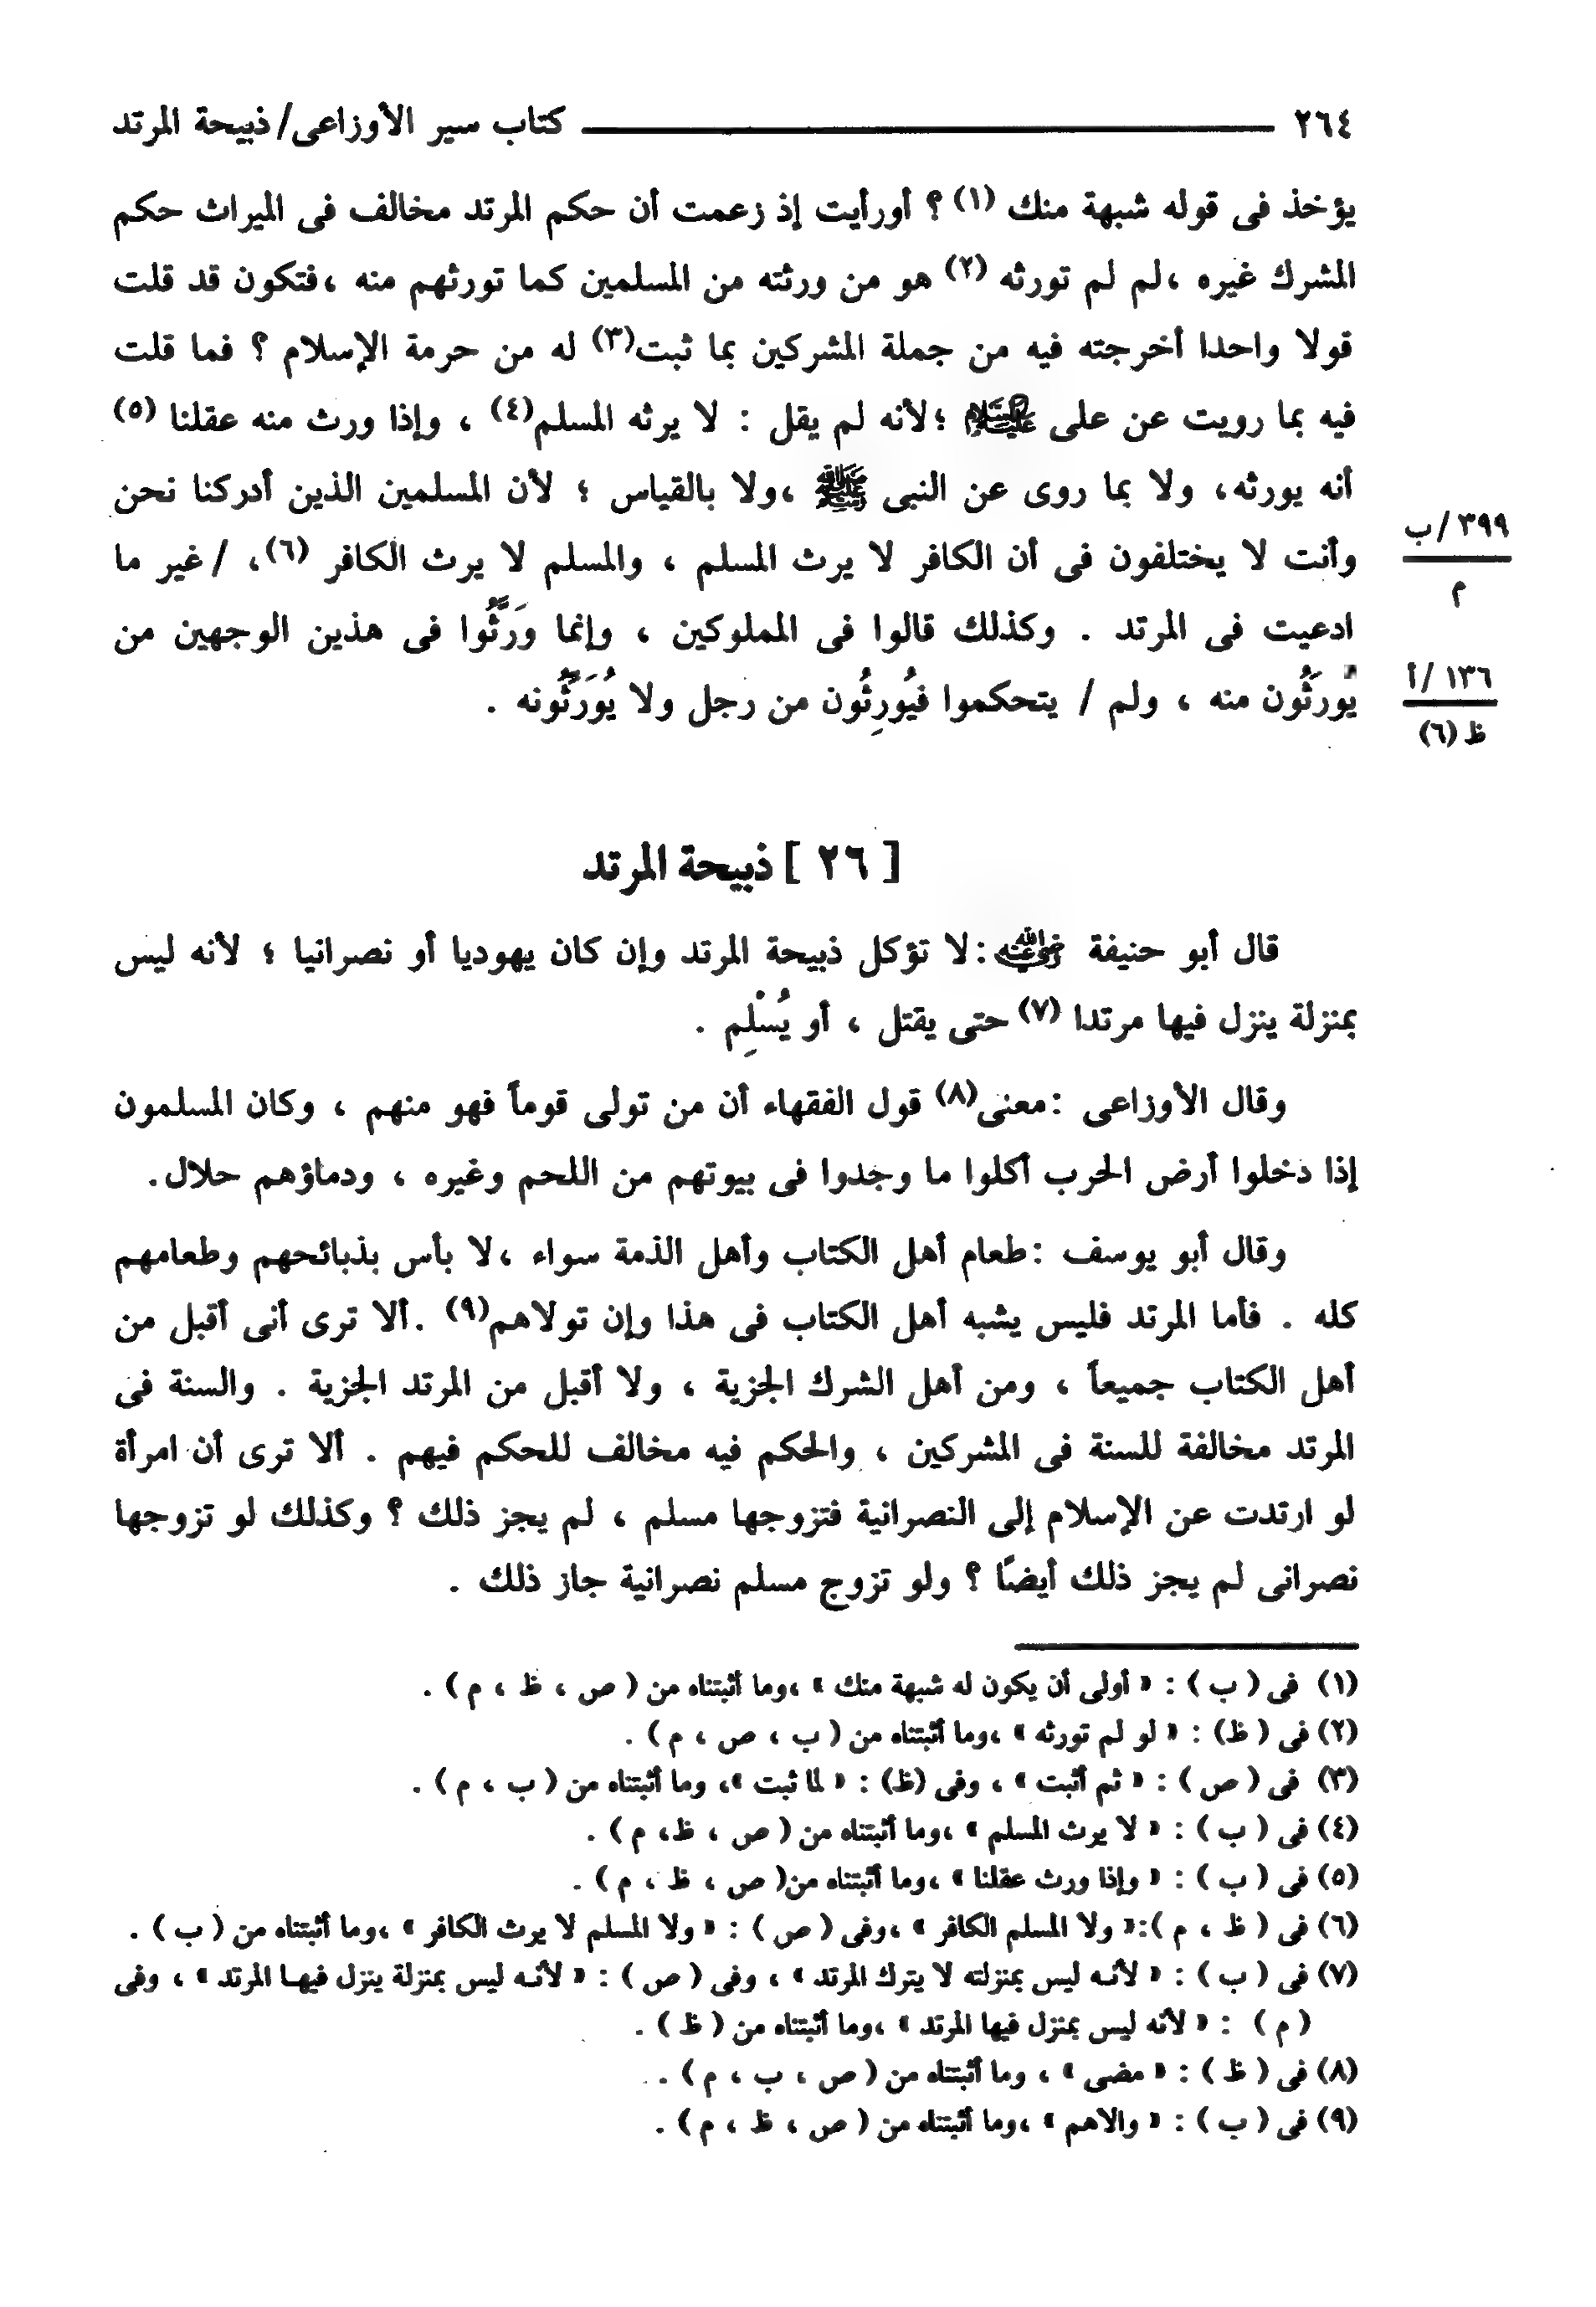 ٢٦٤ كتاب سير الأوزاعى/ ذبيحة المرتد
يؤخذ فى قوله شبهة منك (١) ؟ أورأيت إذ زعمت أن حكم المرتد مخالف فى الميراث حكم
المشرك غيره ،لم لم تورثه (٢) هو من ورثته من المسلمين كما تورثهم منه ،فتكون قد قلت
قولا واحدا أخرجته فيه من جملة المشركين بما ثبت(٣) له من حرمة الإسلام ؟ فما قلت
فيه بما رويت عن على عليه السلام ؛لأنه لم يقل : لا يرثه المسلم(٤) ، وإذا ورث منه عقلنا (٥)
أنه يورثه، ولا بما روى عن النبى ﷺ ،ولا بالقياس ؛ لأن المسلمين الذين أدركنا نحن
وأنت لا يختلفون فى أن الكافر لا يرث المسلم ، والمسلم لا يرث الكافر (٦)، / غير ما
٣٩٩/ب
م
ادعيت فى المرتد . وكذلك قالوا فى المملوكين ، وإنما وَرَّثُوا فى هذين الوجهين من
يُورَثُون منه ، ولم / يتحكموا فيُورِثُون من رجل ولا يُوَرِّثُونه .
١٣٦/أ
ظ (٦)
[ ٢٦ ] ذبيحة المرتد
قال أبو حنيفة رضي الله عنه :لا تؤكل ذبيحة المرتد وإن كان يهوديا أو نصرانيا ؛ لأنه ليس
بمنزلة ينزل فيها مرتدا (٧) حتى يقتل ، أو يُسْلِم .
وقال الأوزاعى :معنى(٨) قول الفقهاء أن من تولى قوماً فهو منهم ، وكان المسلمون
إذا دخلوا أرض الحرب أكلوا ما وجدوا فى بيوتهم من اللحم وغيره ، ودماؤهم حلال.
وقال أبو يوسف :طعام أهل الكتاب وأهل الذمة سواء ،لا بأس بذبائحهم وطعامهم
كله . فأما المرتد فليس يشبه أهل الكتاب فى هذا وإن تولاهم(٩) .ألا ترى أنى أقبل من
أهل الكتاب جميعاً ، ومن أهل الشرك الجزية ، ولا أقبل من المرتد الجزية . والسنة فى
المرتد مخالفة للسنة فى المشركين ، والحكم فيه مخالف للحكم فيهم . ألا ترى أن امرأة
لو ارتدت عن الإسلام إلى النصرانية فتزوجها مسلم ، لم يجز ذلك ؟ وكذلك لو تزوجها
نصرانى لم يجز ذلك أيضًا ؟ ولو تزوج مسلم نصرانية جاز ذلك .
(١) فى ( ب ) : « أولى أن يكون له شبهة منك » ،وما أثبتناه من ( ص ، ظ ، م ) .
(٢) فى ( ظ) : « لو لم تورثه » ،وما أثبتناه من ( ب ، ص ، م ) .
(٣) فى ( ص ) : « ثم أثبت » ، وفى (ظ) : « لما ثبت »، وما أثبتناه من ( ب ، م ) .
(٤) فى ( ب ) : « لا يرث المسلم » ،وما أثبتناه من ( ص ، ظ، م ) .
(٥) فى ( ب ) : « وإذا ورث عقلنا » ،وما أثبتناه من( ص ، ظ ، م ) .
(٦) فى ( ظ ، م ):« ولا المسلم الكافر » ،وفى ( ص ) : « ولا المسلم لا يرث الكافر » ،وما أثبتناه من ( ب ) .
(٧) فى ( ب ) : « لأنه ليس بمنزلته لا يترك المرتد » ، وفى ( ص ) : « لأنه ليس بمنزلة ينزل فيها المرتد » ، وفى
( م ) : « لأنه ليس بمنزل فيها المرتد » ،وما أثبتناه من ( ظ ) .
(٨) فى ( ظ ) : « مضى » ، وما أثبتناه من ( ص ، ب ، م ) .
(٩) فى ( ب ) : « والاهم » ،وما أثبتناه من ( ص ، ظ ، م ) .